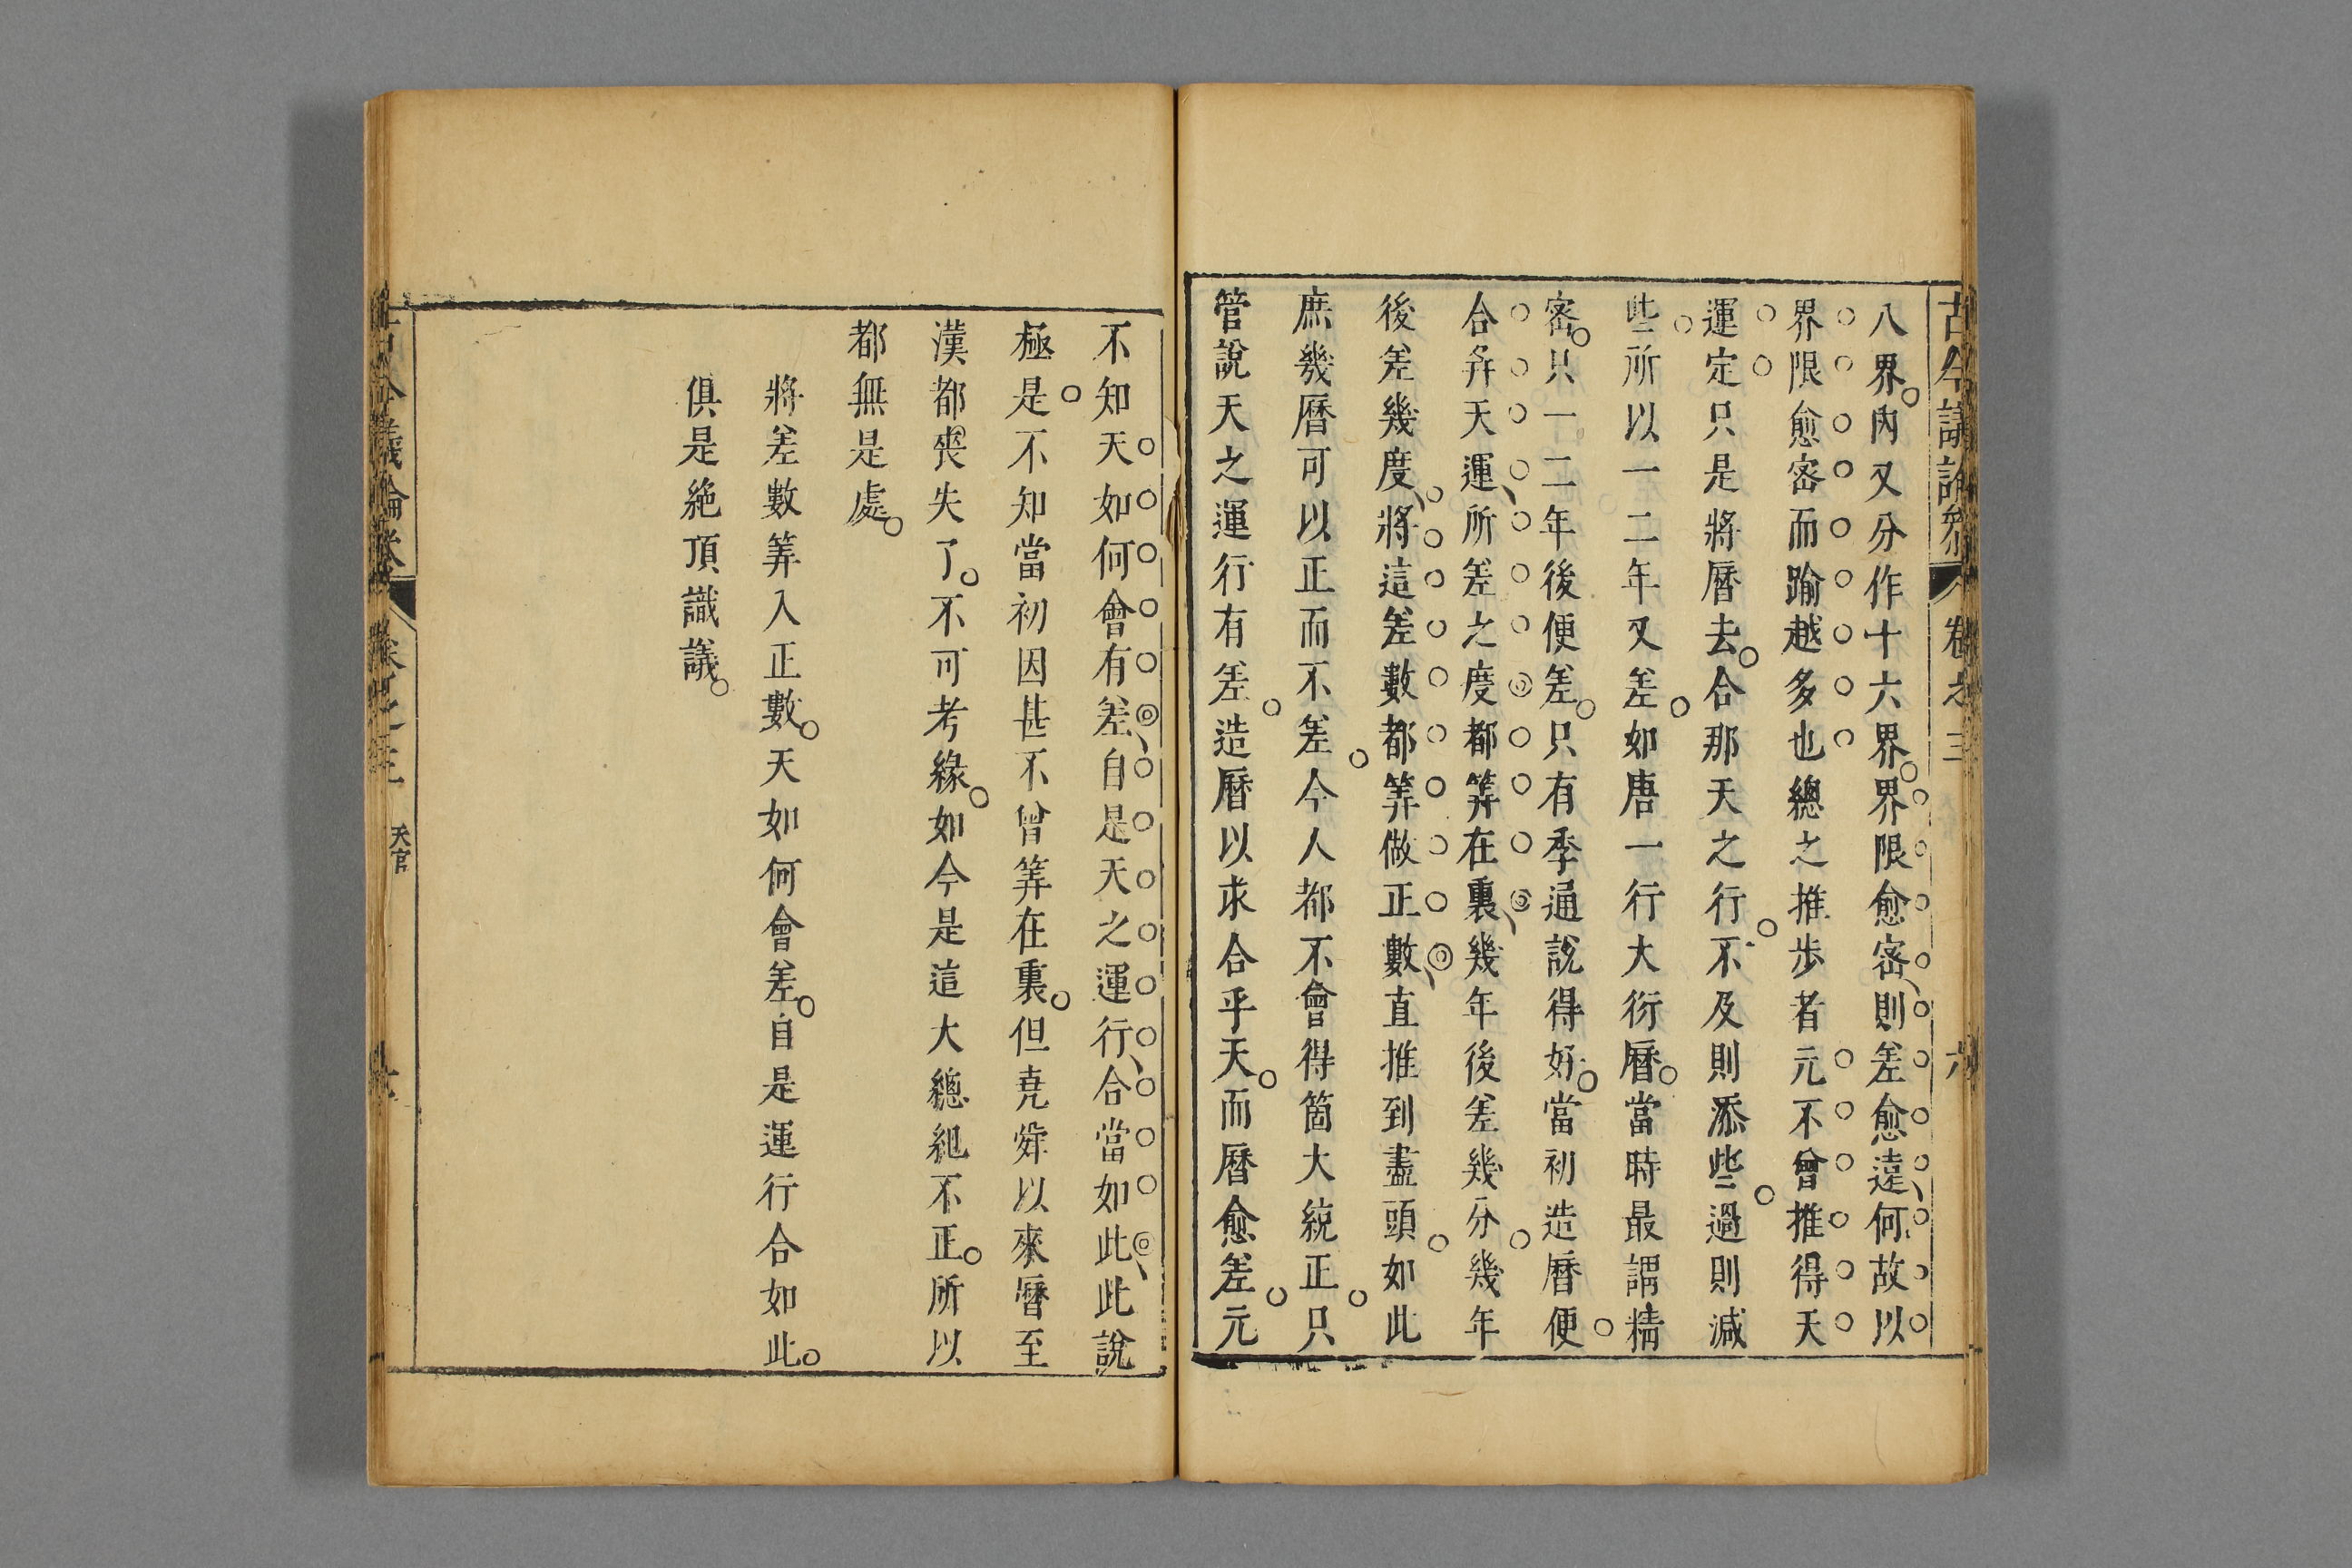 古今議論參 卷之三 六
八界。內又分作十六界。界限愈密、則差愈遠、何故以
界限愈密而踰越多也總之推步者元不會推得天
運定只是將曆去。合那天之行。不及則添些。過則減
些所以一二年又差。如唐一行大衍曆。當時最謂精
密。只一二年後便差。只有季通說得好。當初造曆便。
合并天運、所差之度都筭在裏、幾年後差幾分。幾年
後差幾度、將這差數都筭做正數、直推到盡頭。如此
庶幾曆可以正而不差。今人都不會得箇大統正。只
管說天之運行有差。造曆以求合乎天。而曆愈差。元
不知天如何會有差、自是天之運行、合當如此、此說
極。是不知當初因甚不曾筭在裏。但堯舜以來曆至
漢都喪失了。不可考緣。如今是這大總紀不正。所以
都無是處。
將差數筭入正數。天如何會差。自是運行合如此。
俱是絶頂識議。
古今議論參 卷之三 天官 六